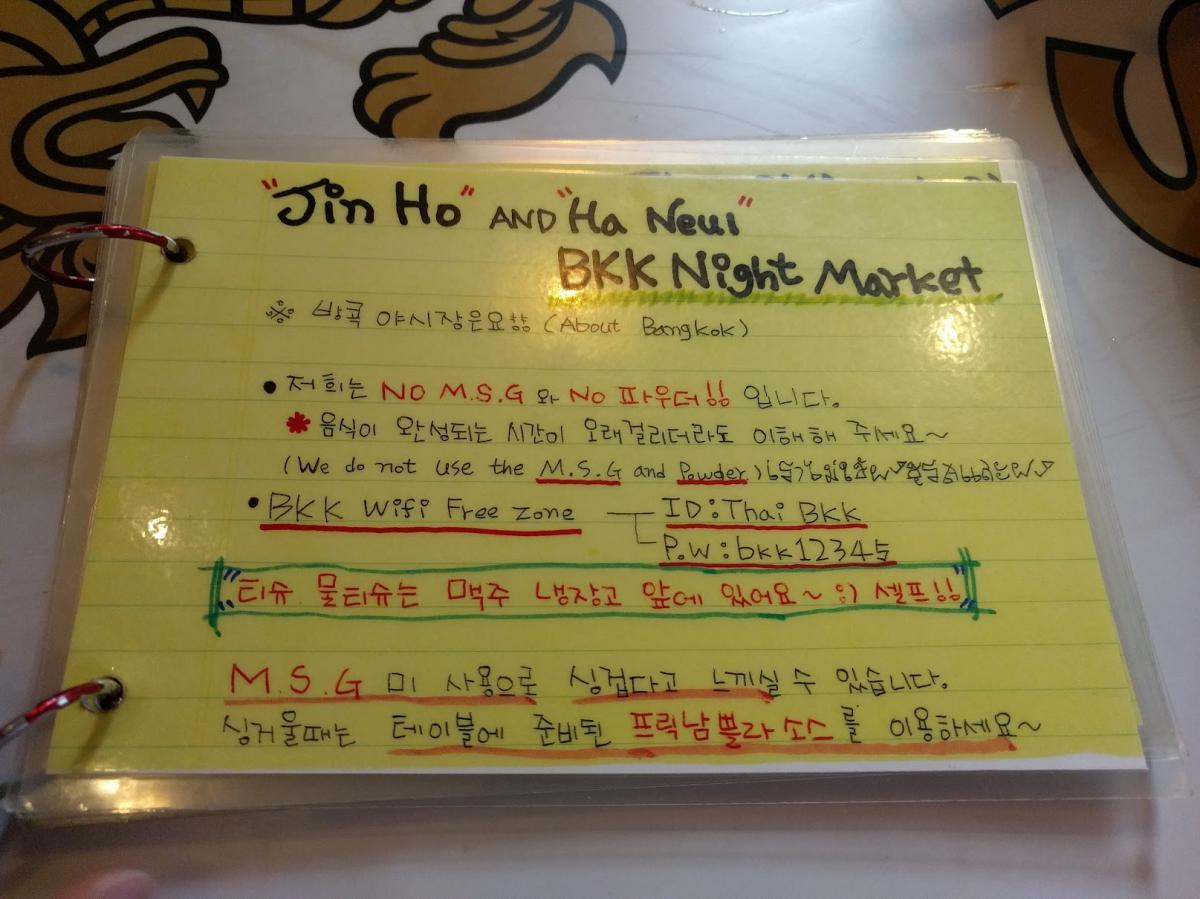 "Jin Ho" AND "Ha Neul"
BKK Night Market
※ 방콕 야시장은요?? (About Bangkok)
• 저희는 NO M.S.G 와 No 파우더!! 입니다.
* 음식이 완성되는 시간이 오래걸리더라도 이해해 주세요~
(We do not use the M.S.G and Powder)
• BKK Wifi Free Zone
ID:Thai BKK
P.W:bkk1234
"티슈 물티슈는 맥주 냉장고 앞에 있어요~ :) 셀프!!"
M.S.G 미 사용으로 싱겁다고 느끼실 수 있습니다.
싱거울때는 테이블에 준비된 프릭남쁠라소스를 이용하세요~